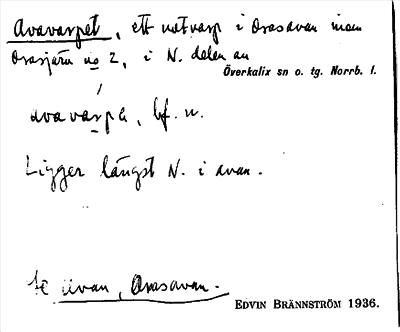 Avavarpet, ett notvarp i Orasavan inom
Orasjärv no 2, i N. delen av
Överkalix sn o. tg. Norrb. l.
avavarpə, bf. n.
Ligger längst N. i avan.
Se Avan, Orasavan.
EDVIN BRÄNNSTRÖM 1936.